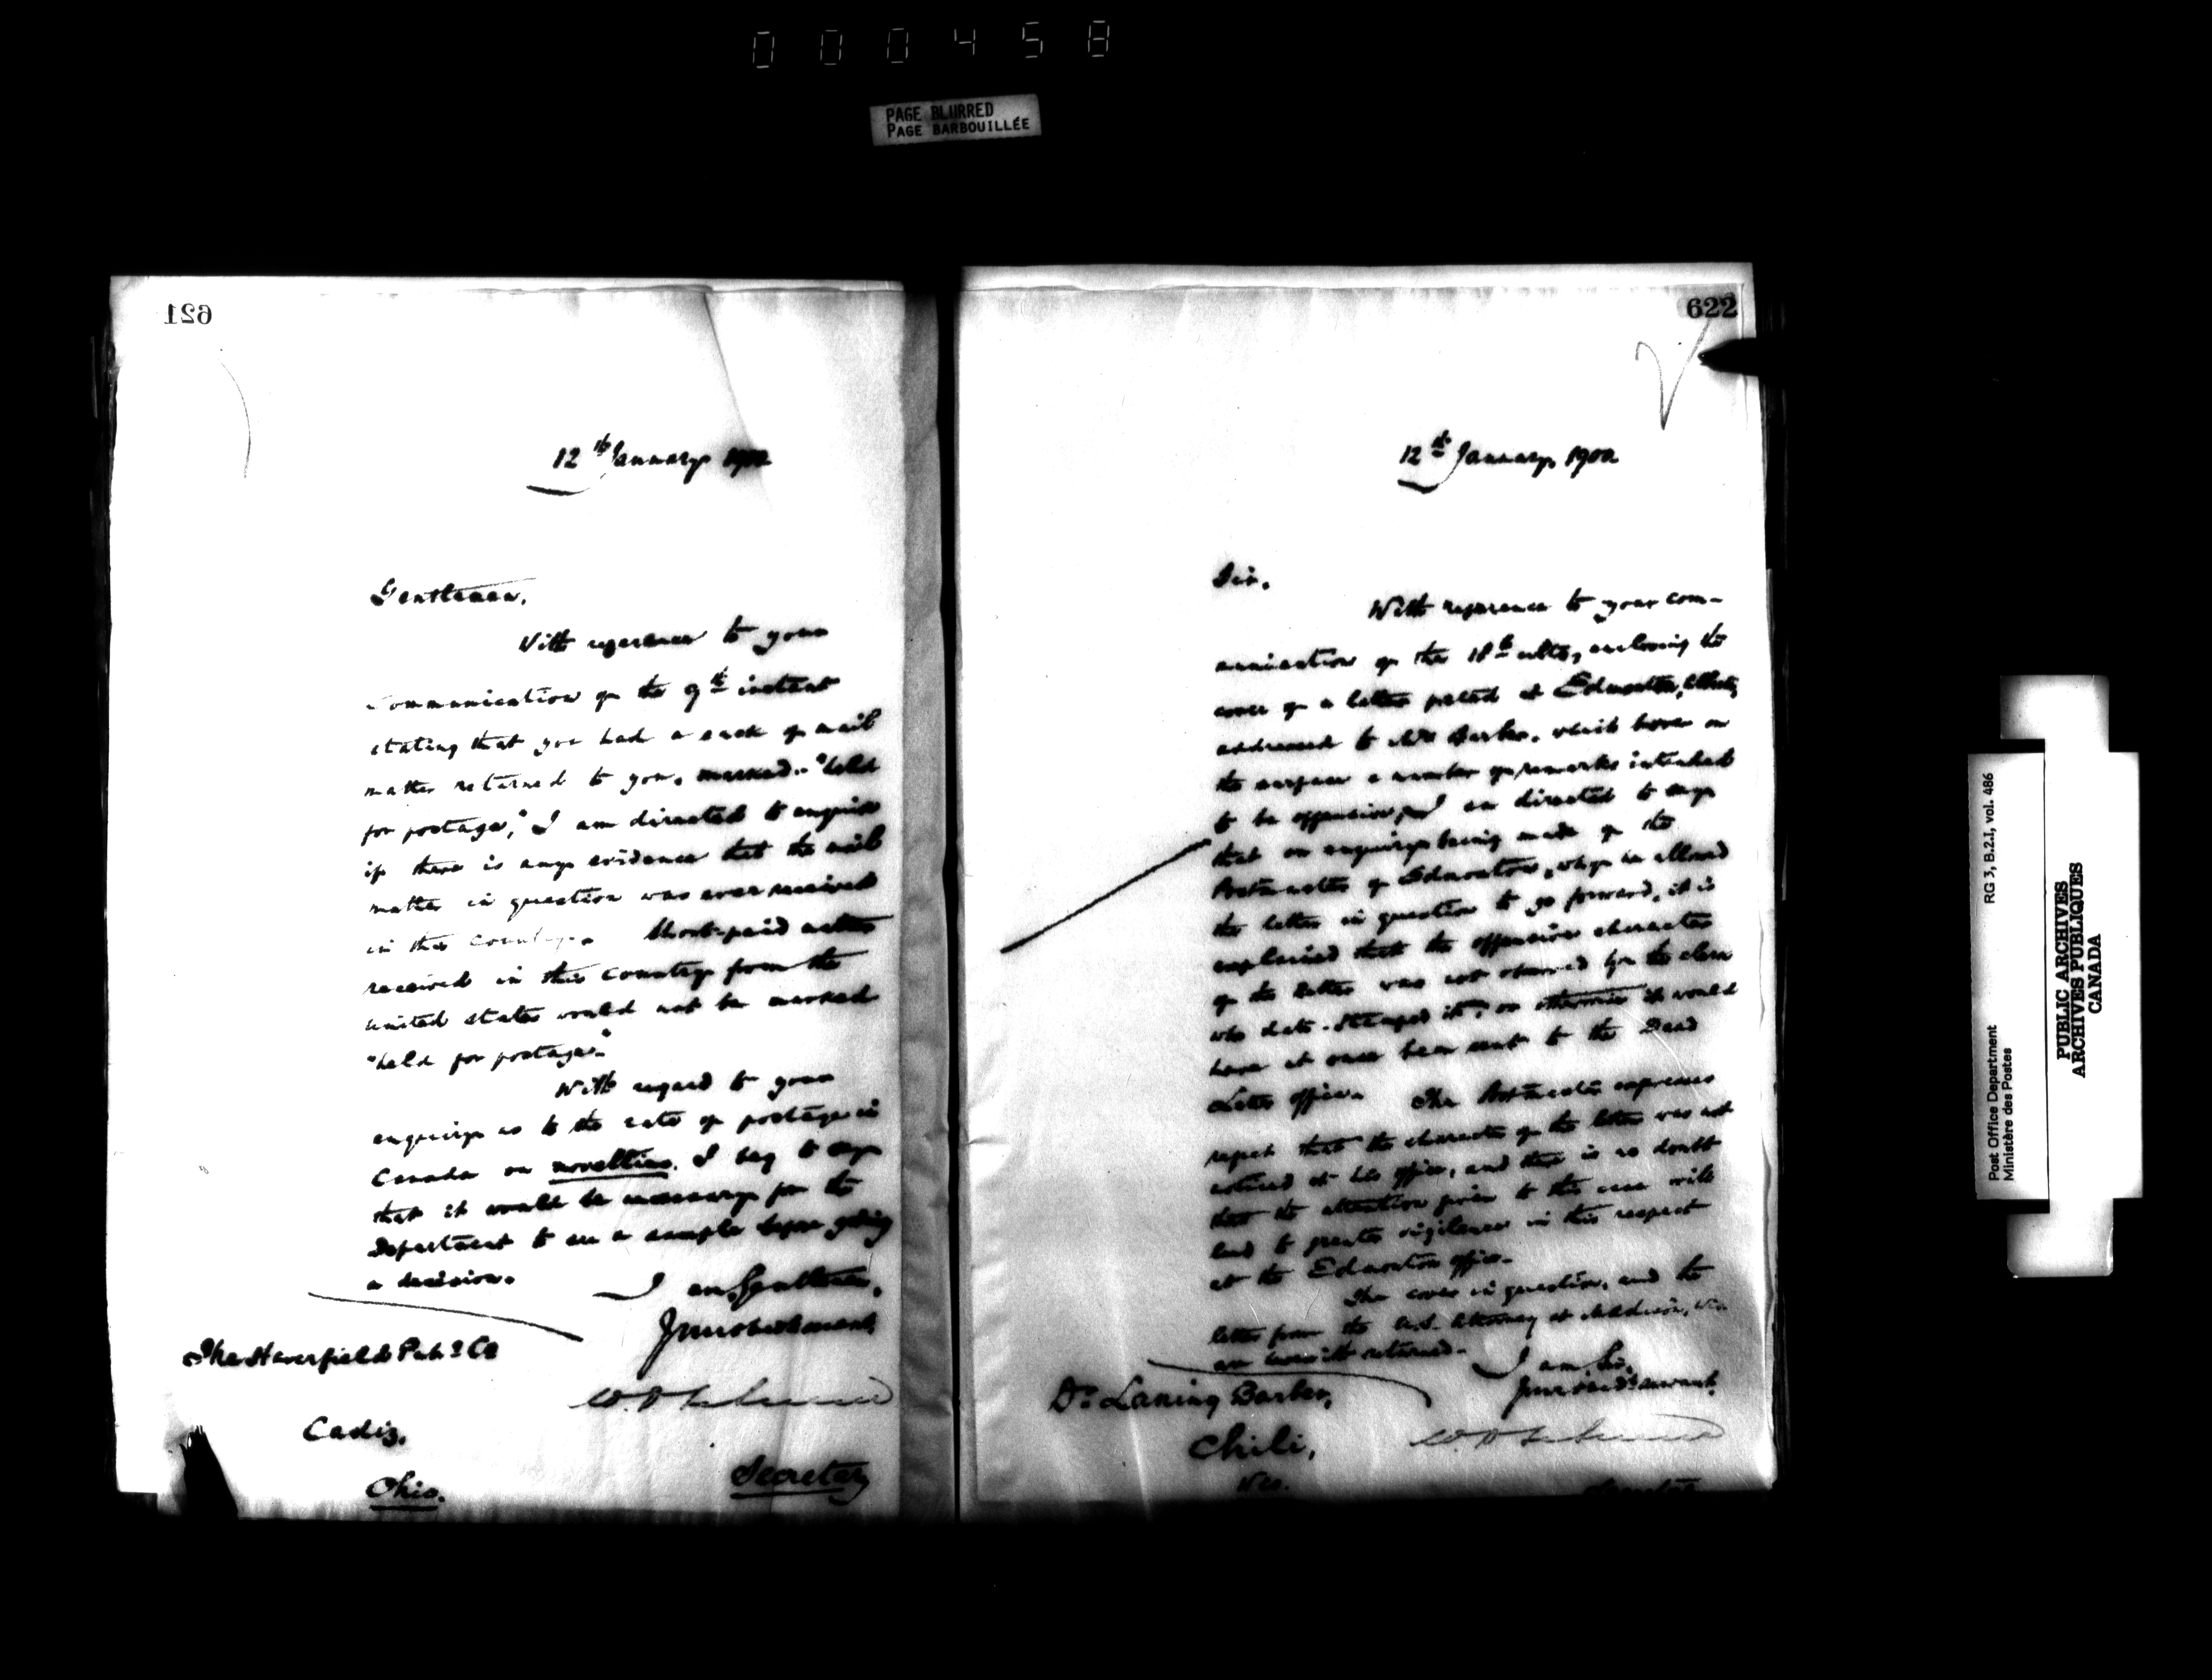 000458
PAGE BLURRED
PAGE BARBOUILLÉE
621
12th January 1902
Gentlemen,
With reference to your
communication of the 9th instant
stating that you had a sack of mail
matter returned to you, marked "held
for postage," I am directed to enquire
if there is any evidence that the mail
matter in question was ever received
in this country. Short-paid matter
received in this country from the
United States would not be marked
"held for postage."
With regard to your
enquiry as to the rate of postage in
Canada on novelties, I beg to say
that it would be necessary for the
Department to see a sample before giving
a decision.
I am, Gentlemen,
Your obedt servant,
The Haverfield Pub. Co
Cadiz,
Ohio.
Secretary
622
12th January, 1902
Sir,
With reference to your com-
munication of the 18th ulto, enclosing the
cover of a letter posted at Edmonton, Alberta,
addressed to Mrs Barber, which bore on
the surface a number of remarks intended
to be offensive, I am directed to say
that on enquiry being made of the
Postmaster of Edmonton, why he allowed
the letter in question to go forward, it is
explained that the offensive character
of the letter was not observed by the clerk
who date-stamped it, or otherwise it would
have at once been sent to the Dead
Letter Office. The Postmaster expresses
regret that the character of the letter was not
noticed at his office, and there is no doubt
that the attention given to this case will
lead to greater vigilance in this respect
at the Edmonton office.
The cover in question, and the
letter from the U.S. Attorney at Madison, Wis
are herewith returned.
I am, Sir,
Your obedt servant,
Dr Laning Barber,
Chili,
Wis.
Secretary
Post Office Department
Ministère des Postes
RG 3, B.2.1, vol. 486
PUBLIC ARCHIVES
ARCHIVES PUBLIQUES
CANADA